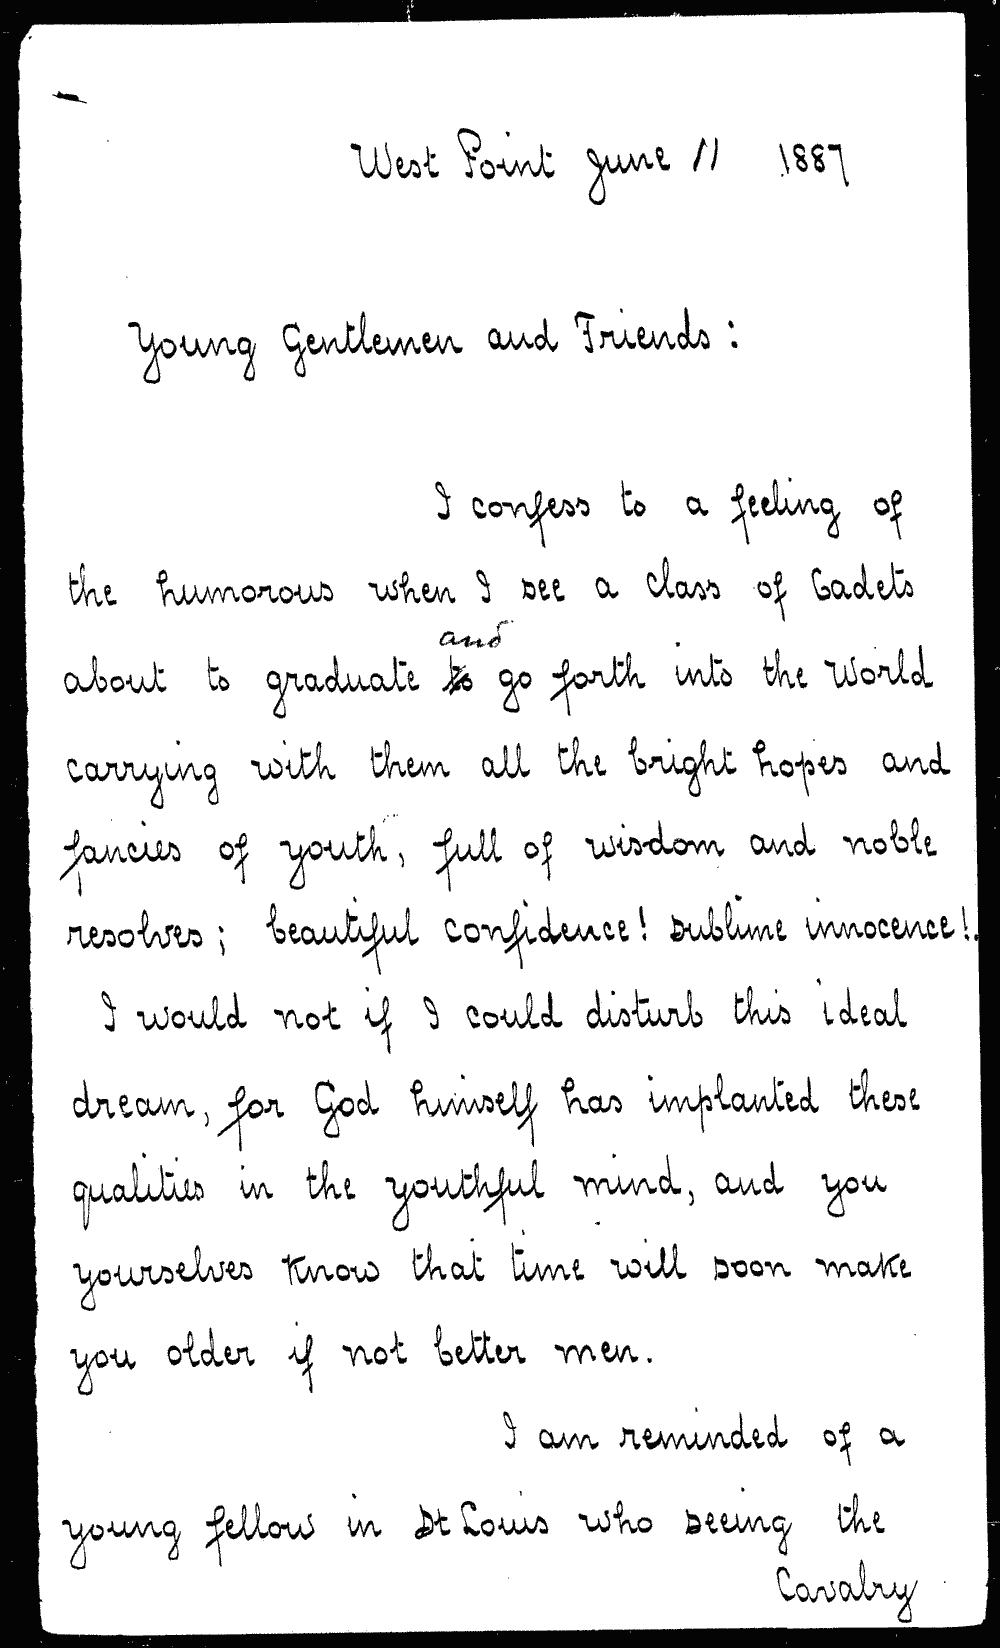 West Point June 11 1887
Young Gentlemen and Friends:
I confess to a feeling of
the humorous when I see a class of Cadets
and
about to graduate to go forth into the World
carrying with them all the bright hopes and
fancies of youth, full of wisdom and noble
resolves; beautiful confidence! sublime innocence!.
I would not if I could disturb this ideal
dream, for God himself has implanted these
qualities in the youthful mind, and you
yourselves know that time will soon make
you older if not better men.
I am reminded of a
young fellow in St Louis who seeing the
Cavalry